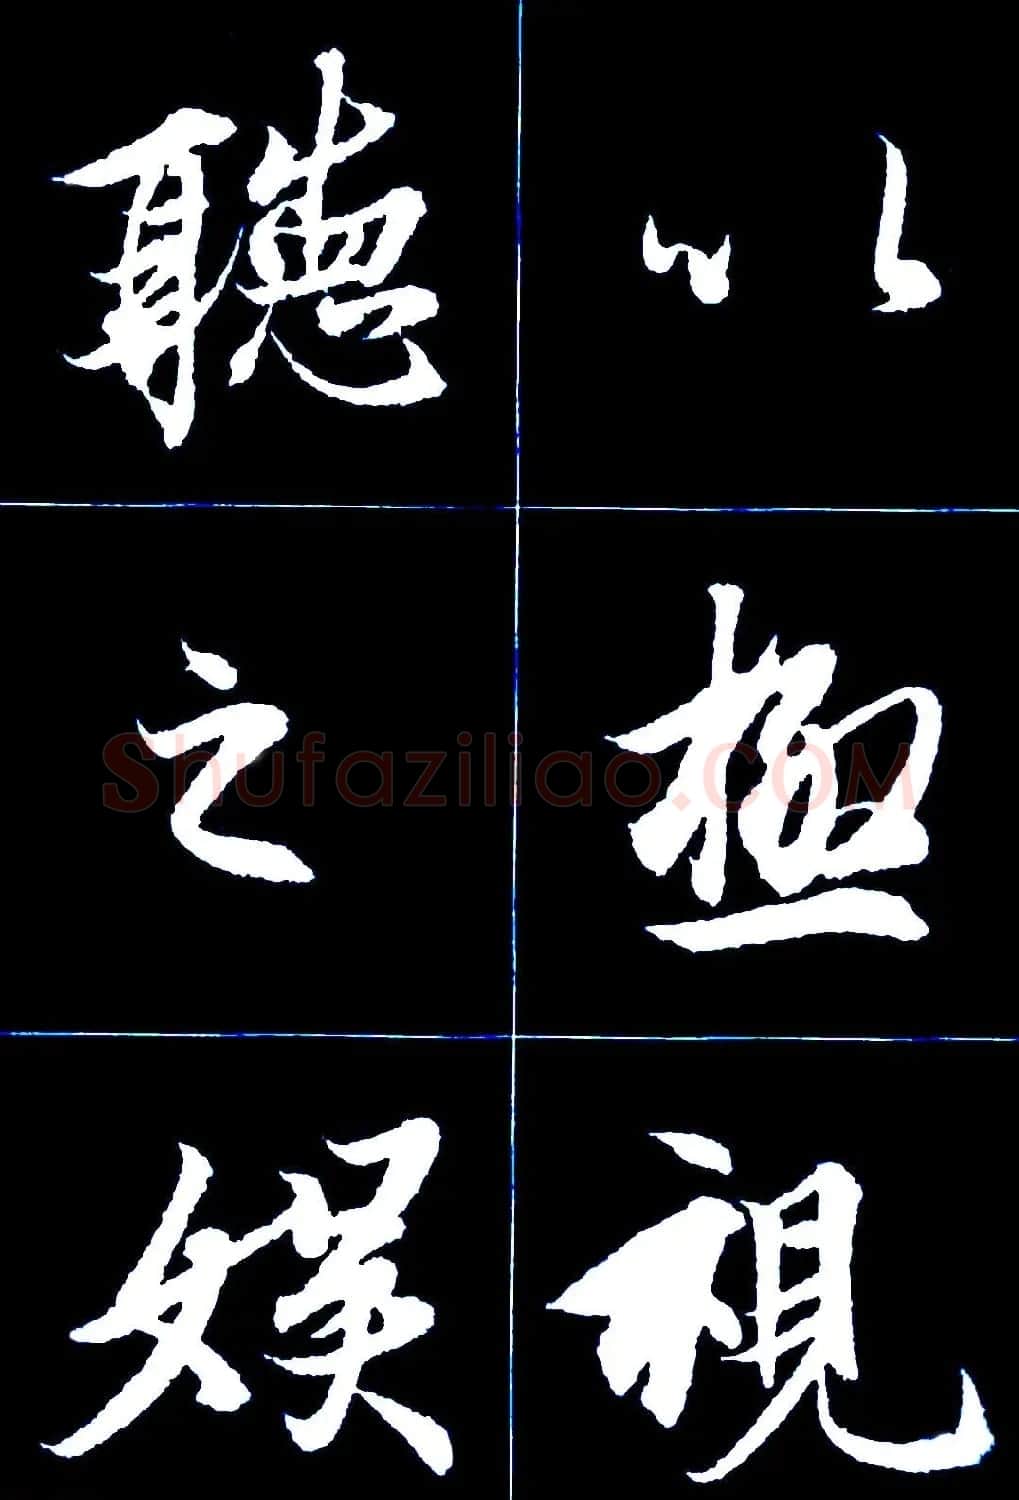 以極視
聽之娛
Shufaziliao.com